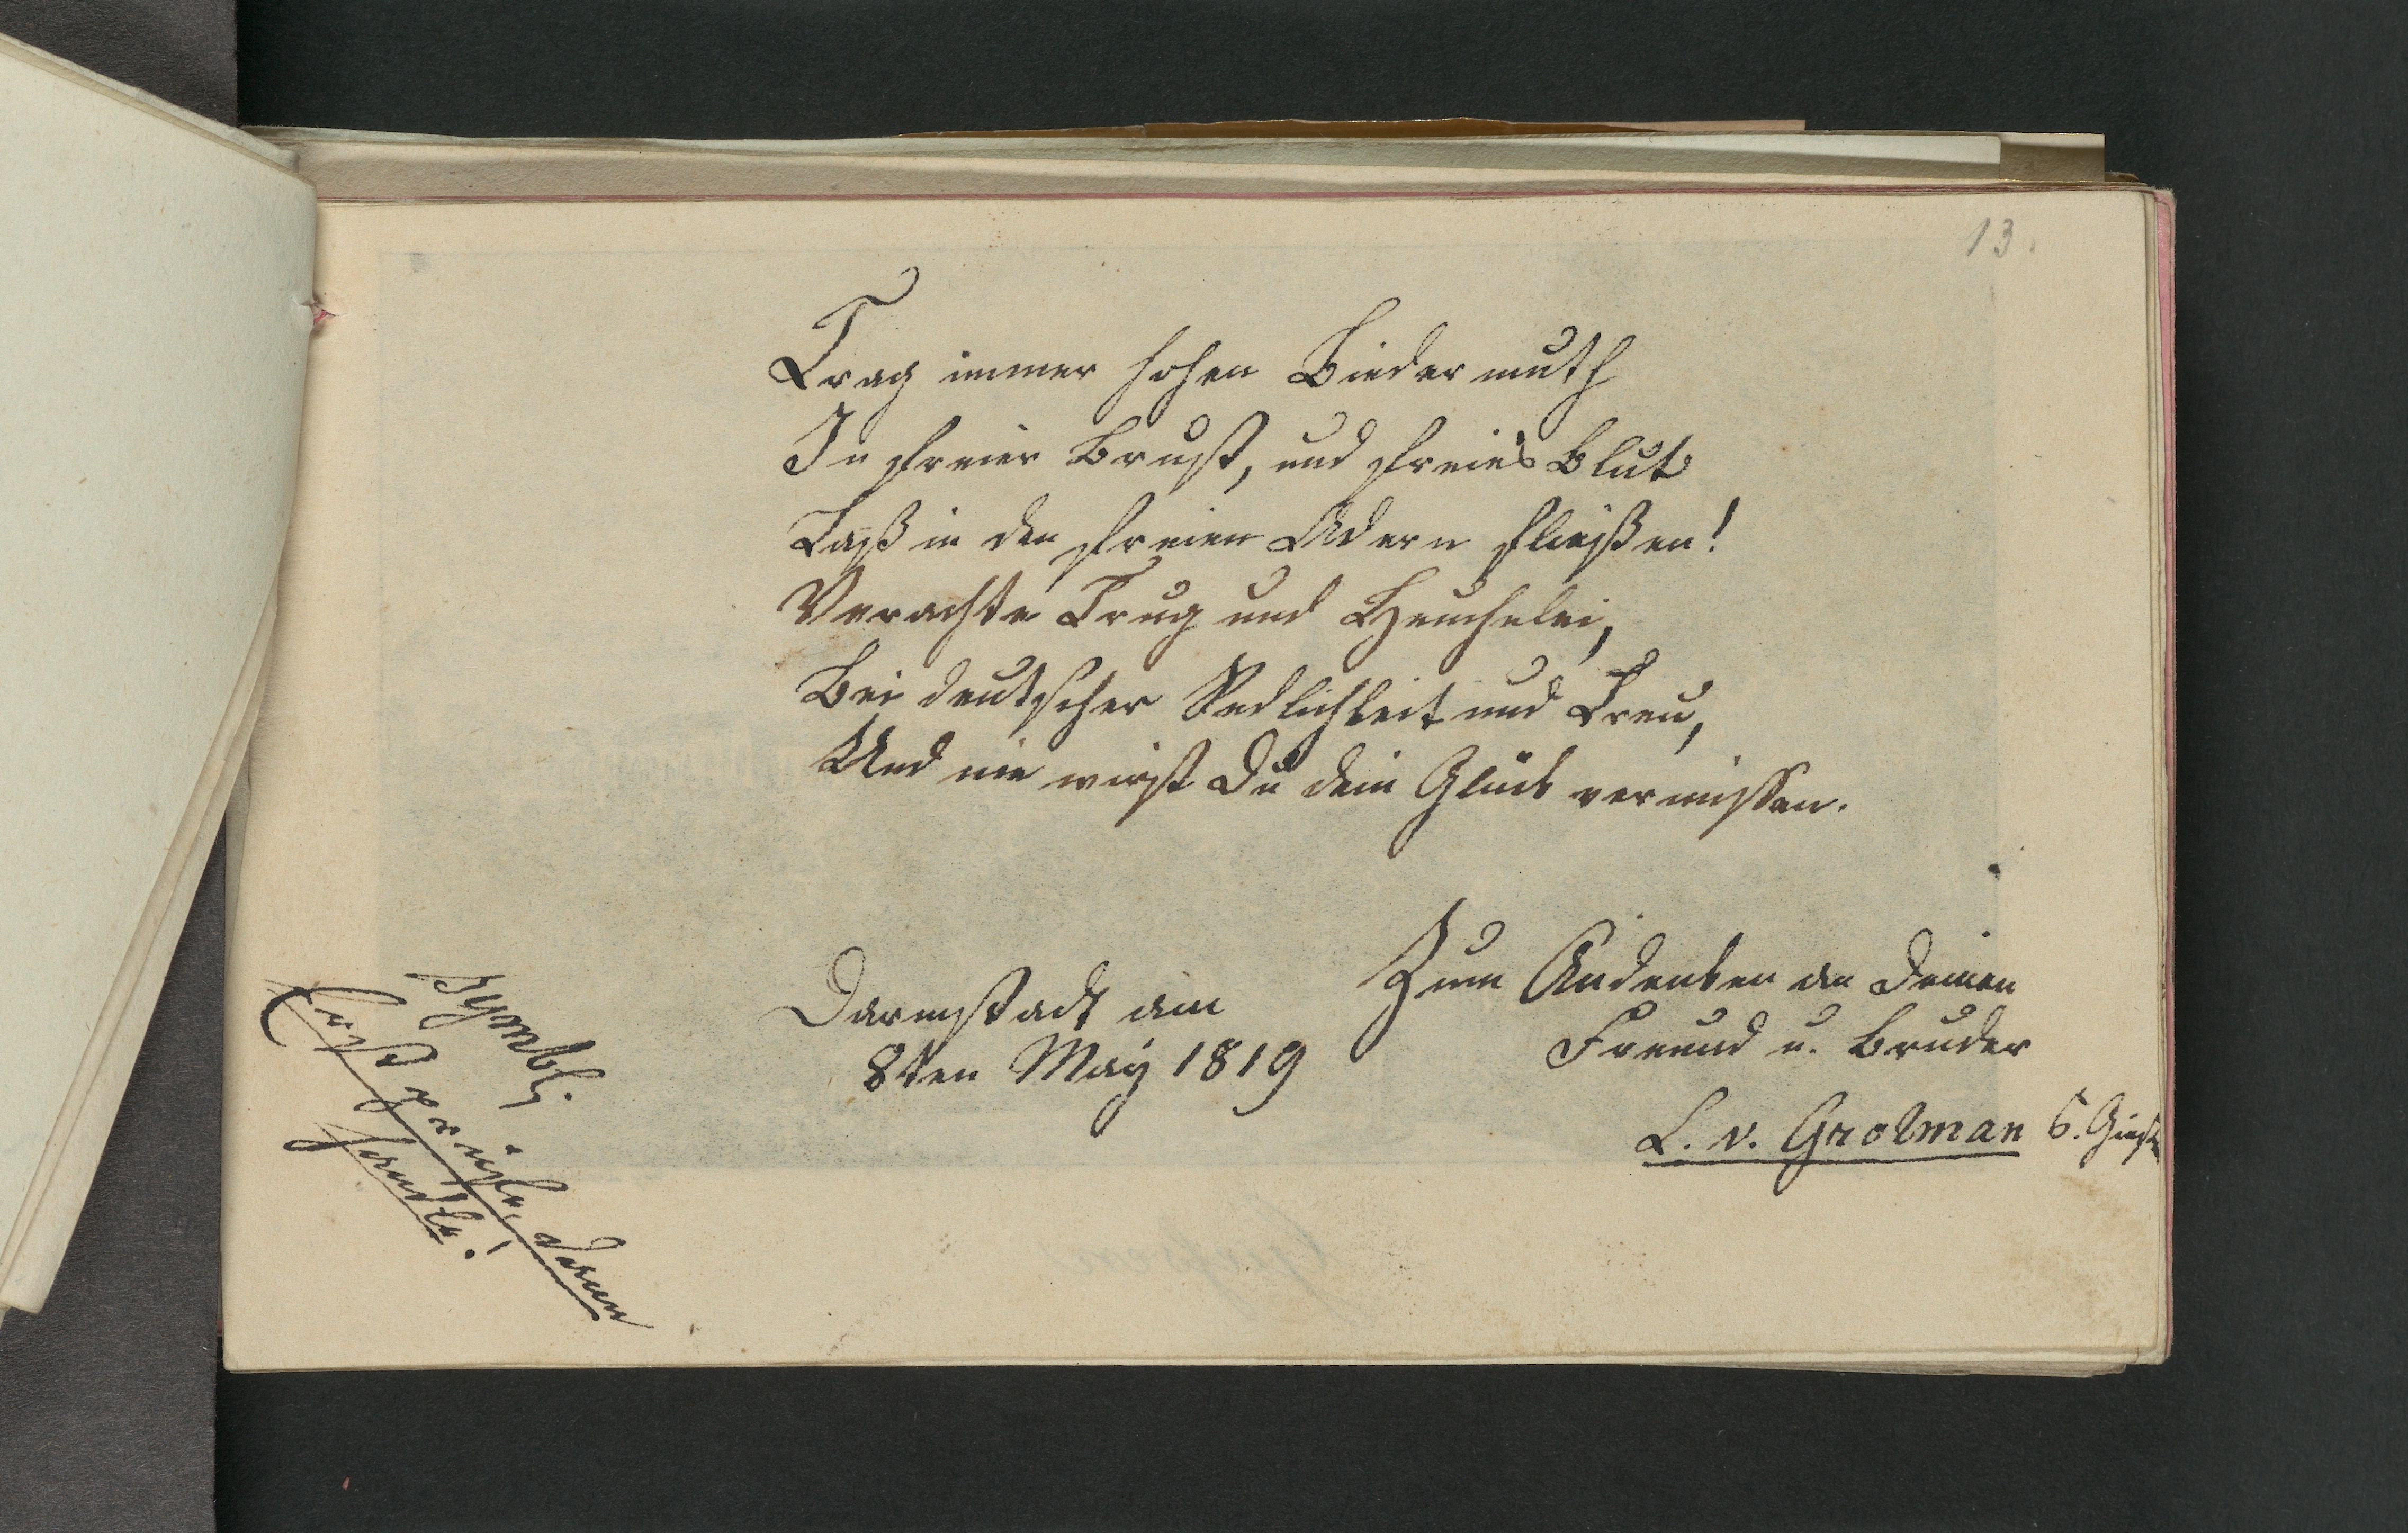 13.
Trag immer hohen Biedermuth
In freier Brust, und freies Blut
Laß in den freien Adern fließen!
Verachte Trug und Heuchelei,
Bei deutscher Redlichkeit und Treu,
Und nie wirst Du dein Glück vermissen.
Darmstadt am
8ten May 1819
Zum Andenken an Deinen
Freund u. Bruder
L. v. Grolman
Symbl.
Erst prüfe, dann
handle!